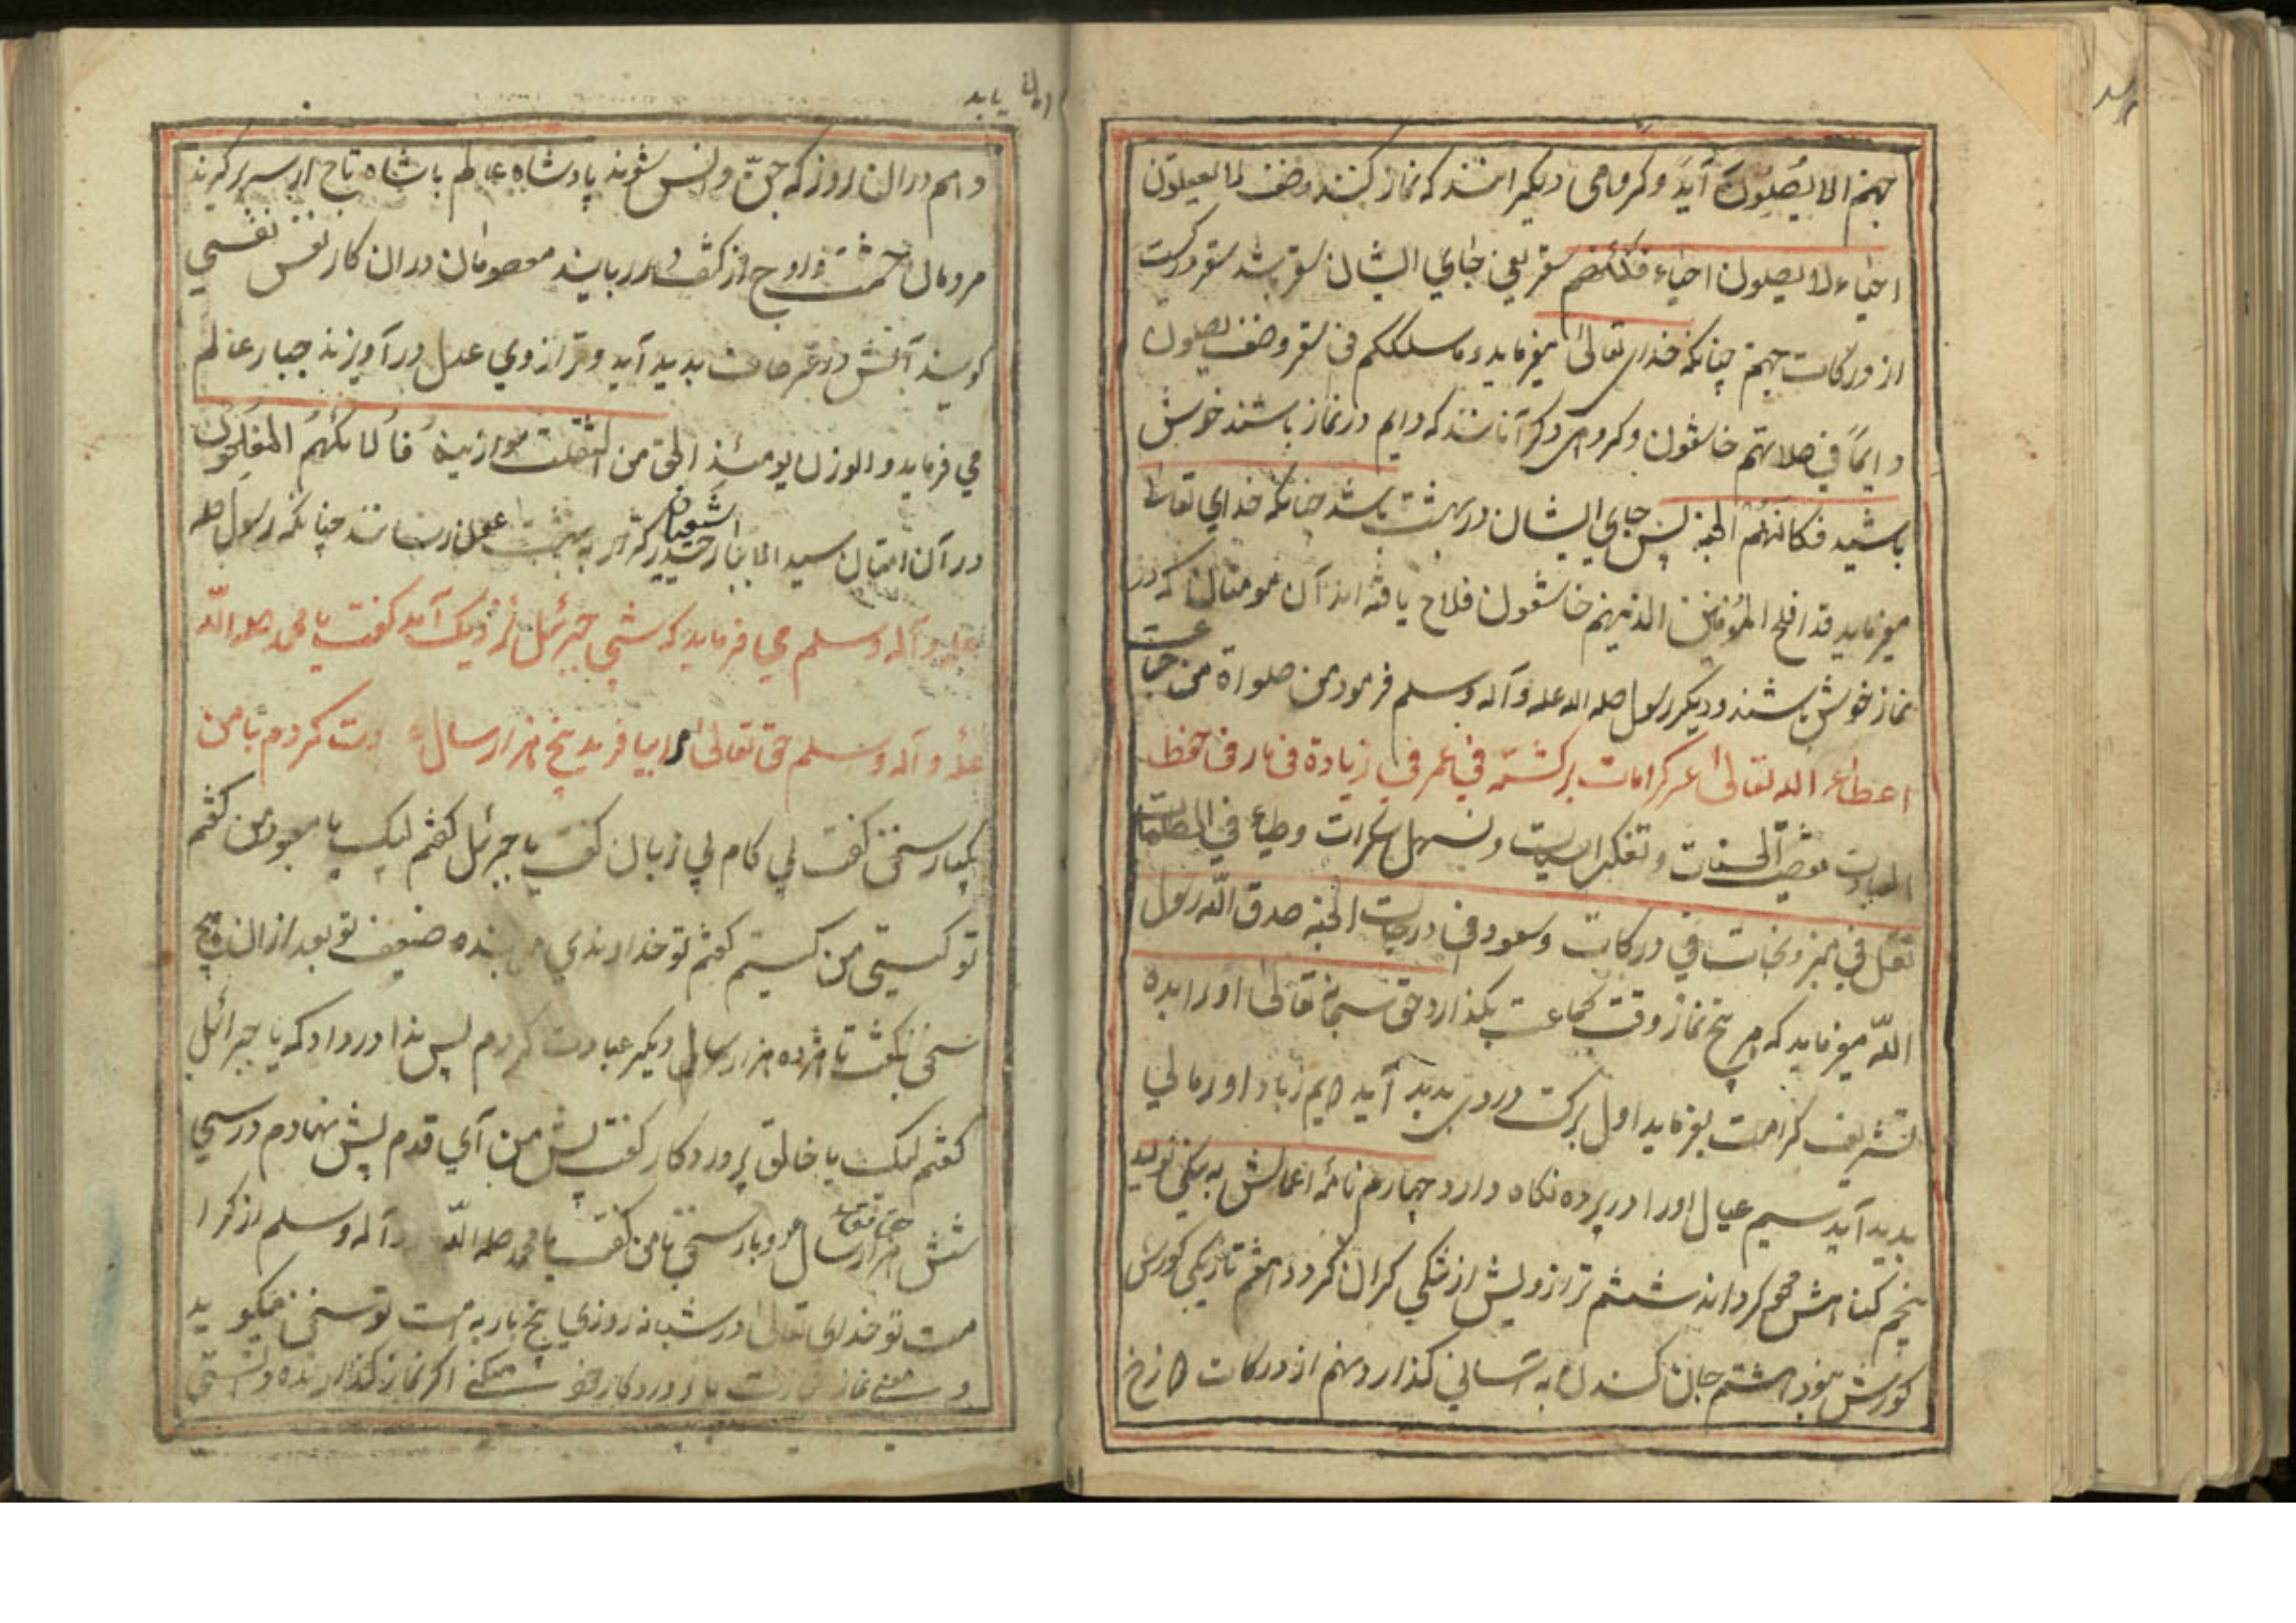 جهنم الا یُصَلُونَ آید و کروهی دیکر انند که نماز کنند وضف لا یصلون
احیاء لا یصلون احیاء فکانهم سقر یعنی جای ایشان سقر باشد سقر درکست
از درکات جهنم چنانکه خدای تعالی میفرماید و ما سلککم فی سقر وضف یصلون
دایماً فی صلاتهم خاشعون و کروهی دکر آنانند که دایم در نماز باشند خوش
باشید فکانهم الجنه پس جای ایشان در بهشت باشد چنانکه خدای تعالی
میفرماید قد افلح المؤمنین الذینهم خاشعون فلاح یافته اند آن مومنان که در
نماز خوش باشند و دیکر رسول صله الله علیه و آله وسلم فرمود من صلواة من جماعت
اعطاء الله تعالی عشر کرامات برکته فی عمر فی زیادة فی مار فی حفظ
العبادت الحسنات و تفکیر السیات و تسهل سکرات وطیاء فی الظلمات
ثقل فی میز و نجات فی درکات وسعود فی درجات الجنه صدق الله رسول
الله میفرماید که هر پنج نماز وقت بجماعت بکذارد حق سبحانه تعالی او را بده
تشریف کرامت بفرماید اول برکت در وی پدید آید دیم زیاد او را مالی
پدید آید سیم عیال او را در پرده نکاه دارد چهارم نامه اعمالش به نیکی نوید
پنجم کناهش محو کرداند ششم ترازویش از نیکی کران کردد هفتم تاریکی کورش
کورش نبود هشتم جان کندن به آسانی کذارد نهم از درکات دوزخ
امان یابد
دهم در ان روز که جنّ و انس شوند پادشاه عالم پادشاه تاج از سر بر کیرند
مردمان حشمت از کتف در ربایند معصومان در ان کار نفس نفسی
کویند آتش در عرصات پدید آید و ترازوی عدل در آویزند جبار عالم
می فرماید والوزن یومئذ الحق من اثقلت موازینه فأُلائکَهُم المفلحون
در آن امتان سید الابرار حیدر کرار شیعیان به بهشت رسانند چنانکه رسول صله
علیه و آله وسلم می فرماید که شبی جبرئیل نزدیک آمد کفت یا محمد صله الله
علیه و آله وسلم حق تعالی مرا بیافرید پنج هزار سال کردم با من
یکبار سخن کفت بی کام بی زبان کفت یا جبرئیل کفتم لبیک یا معبود من کفتم
تو کیستی من کیستم کفتم تو خداوندی من بنده ضعیف تو بعد از ان هیچ
سخن نکفت تا هژده هزار سال دیکر عبادت کردم پس ندا در داد که یا جبرائیل
کفتم لبیک یا خالق پروردکار کفت پیش من آی قدم پیش نهادم در سی
شش هزار سال دو بار سخن با من کفت حق تعالی یا محمد صله الله و آله وسلم از کرا
مت تو خدای تعالی در شبانه روزی پنج بار به امت تو سخن میکوید
نماز با پروردکار سخن اکر نماز کذارنده دانستی